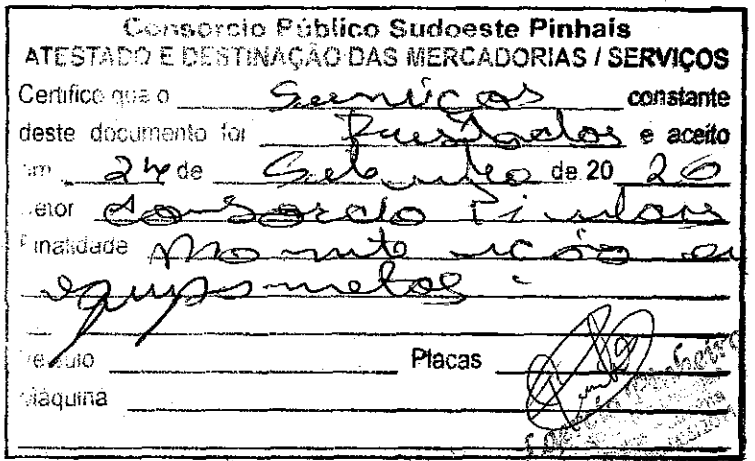 Consorcio Público Sudoeste Pinhais
ATESTADO E DESTINAÇÃO DAS MERCADORIAS / SERVIÇOS
Certifico que o Serviços constante
deste documento foi Prestados e aceito
em 24 de Setembro de 20 20
Setor Consorcio Pinhais
Finalidade Manutenção em
equipametos
Veículo Placas
Máquina
Pinheiro